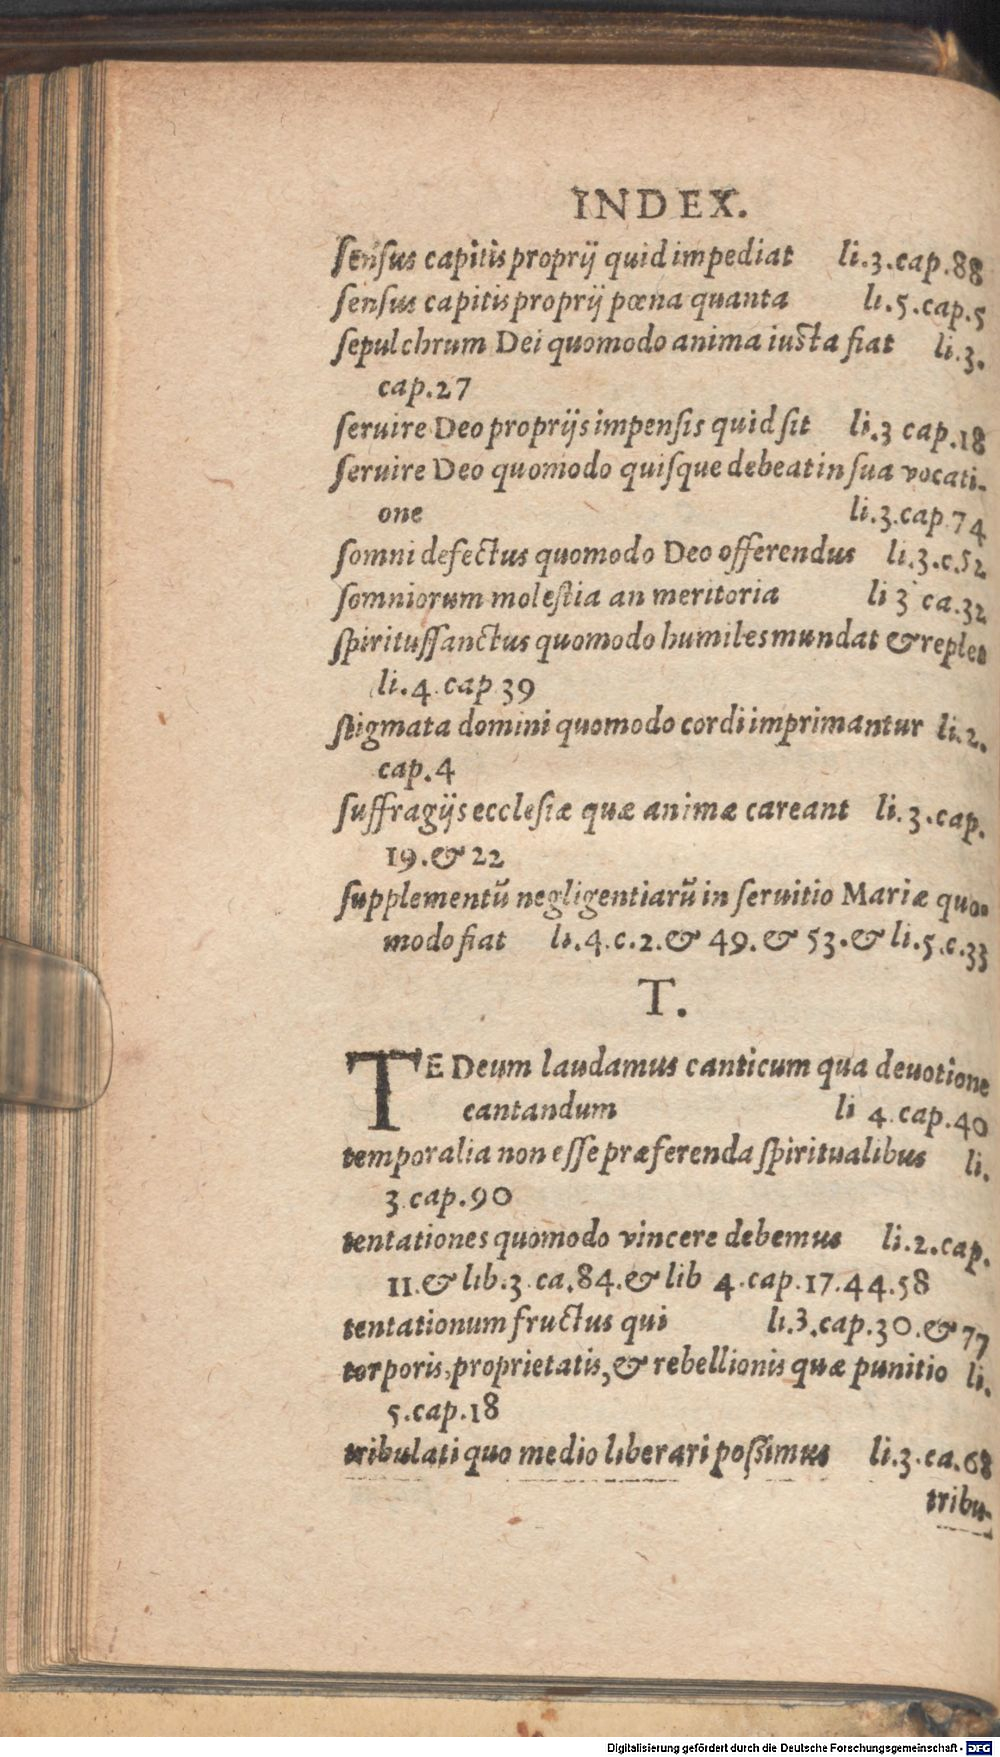 INDEX.
ſenſus capitis proprij quid impediat li.3.cap.88
ſenſus capitis proprij pœna quanta li.5.cap.5
ſepulchrum Dei quomodo anima iuſta fiat li.3.
cap.27
ſeruire Deo proprijs impenſis quid ſit li.3 cap.18
ſeruire Deo quomodo quiſque debeat in ſua vocati-
one li.3.cap.74
ſomni defectus quomodo Deo offerendus li.3.c.52
ſomniorum moleſtia an meritoria li 3 ca.32
ſpirituſſanctus quomodo humiles mundat & replet
li.4.cap 39
ſtigmata domini quomodo cordi imprimantur li.2.
cap.4
ſuffragijs eccleſiæ quæ animæ careant li.3.cap.
19.& 22
ſupplementū negligentiarū in ſeruitio Mariæ quo-
modo fiat li.4.c.2.& 49.& 53.& li.5.c.33
T.
TE Deum laudamus canticum qua deuotione
cantandum li 4.cap.40
temporalia non eſſe præferenda ſpiritualibus li.
3.cap.90
tentationes quomodo vincere debemus li.2.cap.
11.& lib.3.ca.84.& lib 4.cap.17.44.58
tentationum fructus qui li.3.cap.30.& 77
torporis, proprietatis, & rebellionis quæ punitio li.
5.cap.18
tribulati quo medio liberari poſſimus li.3.ca.68
tribu-
Digitalisierung gefördert durch die Deutsche Forschungsgemeinschaft - DFG